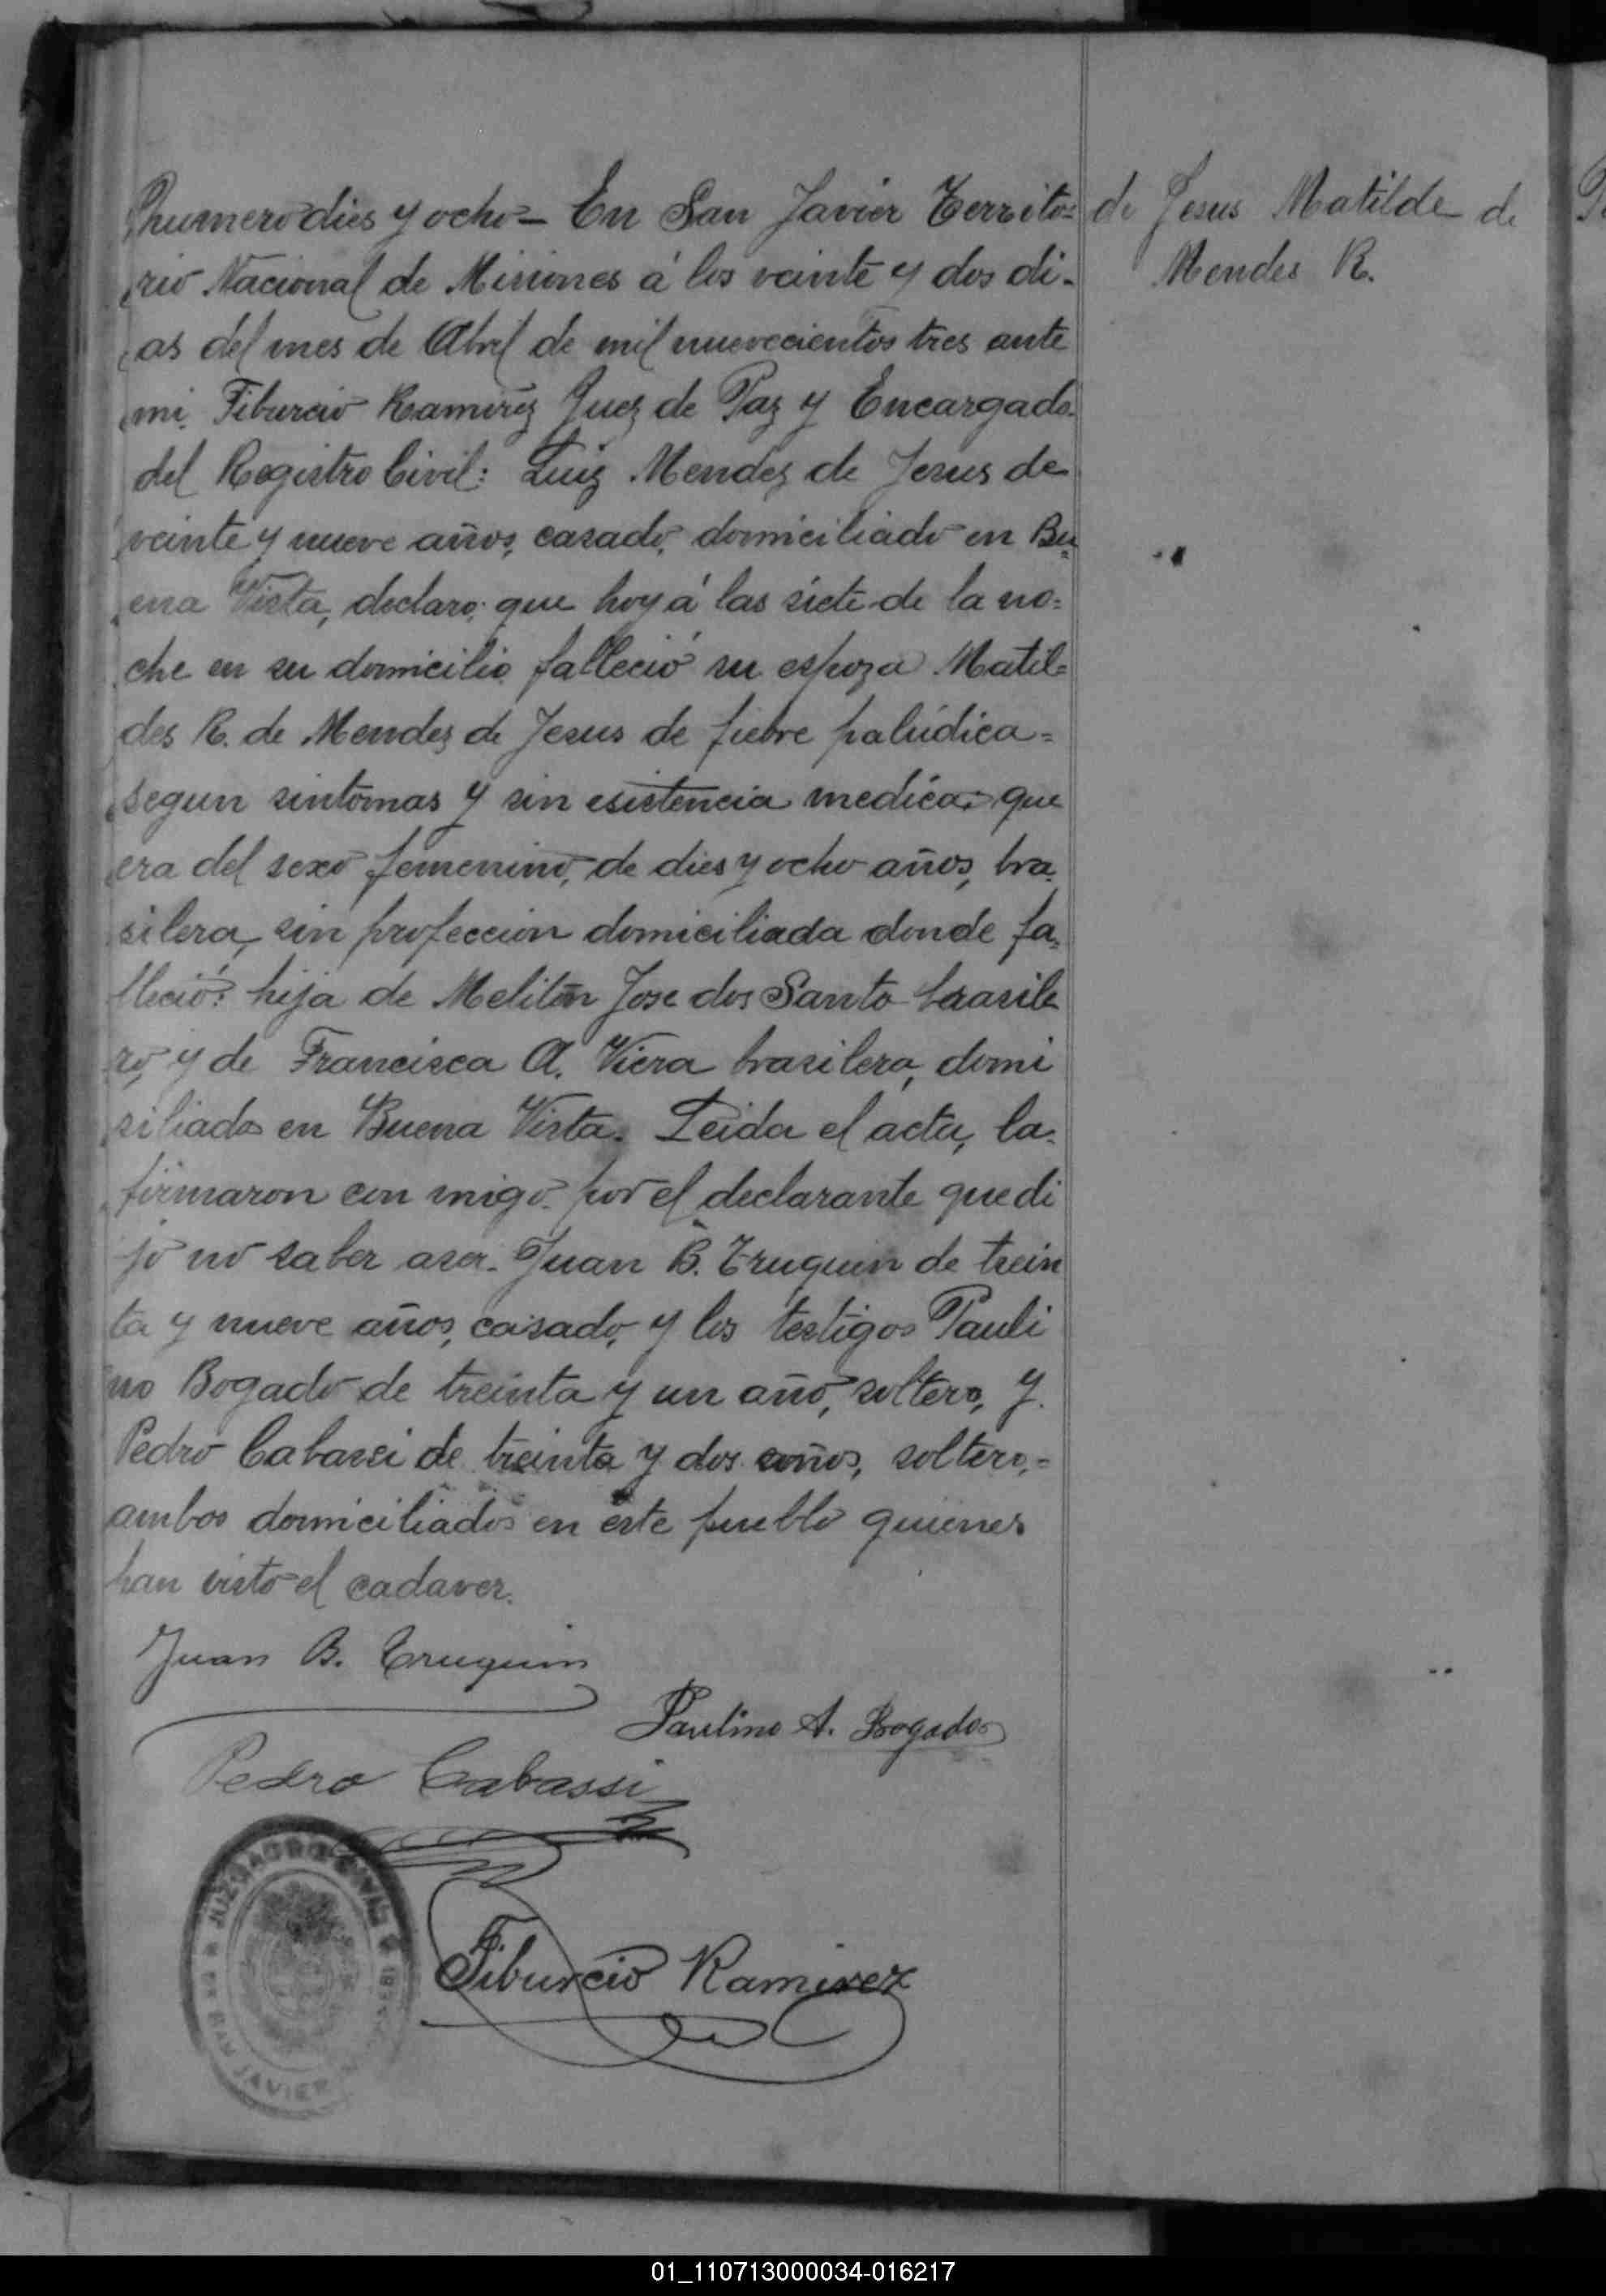 Numero dies y ocho - En San Javier Territo=
rio Nacional de Misiones á los veinte y dos di-
as del mes de Abril de mil nuevecientos tres ante
mi Tiburcio Ramirez Juez de Paz y Encargado
del Registro Civil: Luiz Mendez de Jesus de
veinte y nueve años, casado, domiciliado en Bu
ena Vista, declaro: que hoy á las siete de la no=
che en su domicilio falleció su espoza Matil=
des R. de Mendez de Jesus de fiebre palúdica=
segun sintomas y sin esistencia medica: que
era del sexo femenino, de dies y ocho años, bra
silera, sin profeccion domiciliada donde fa=
lleció: hija de Meliton Jose dos Santo brasile
ro, y de Francisca A. Viera brasilera, domi
siliados en Buena Vista. Leida el acta, la
firmaron con migo por el declarante que di
jo no saber aser. Juan B. Truquin de trein
ta y nueve años, casado, y los testigos Pauli
no Bogado de treinta y un año, soltero, y
Pedro Cabassi de treinta y dos años, soltero,=
ambos domiciliados en este pueblo quienes
han visto el cadaver.
Juan B. Truquin
Paulino A. Bogado
Pedro Cabassi
Tiburcio Ramirez
SAN JAVIER
de Jesus Matilde de
Mendes R.
01_110713000034-016217